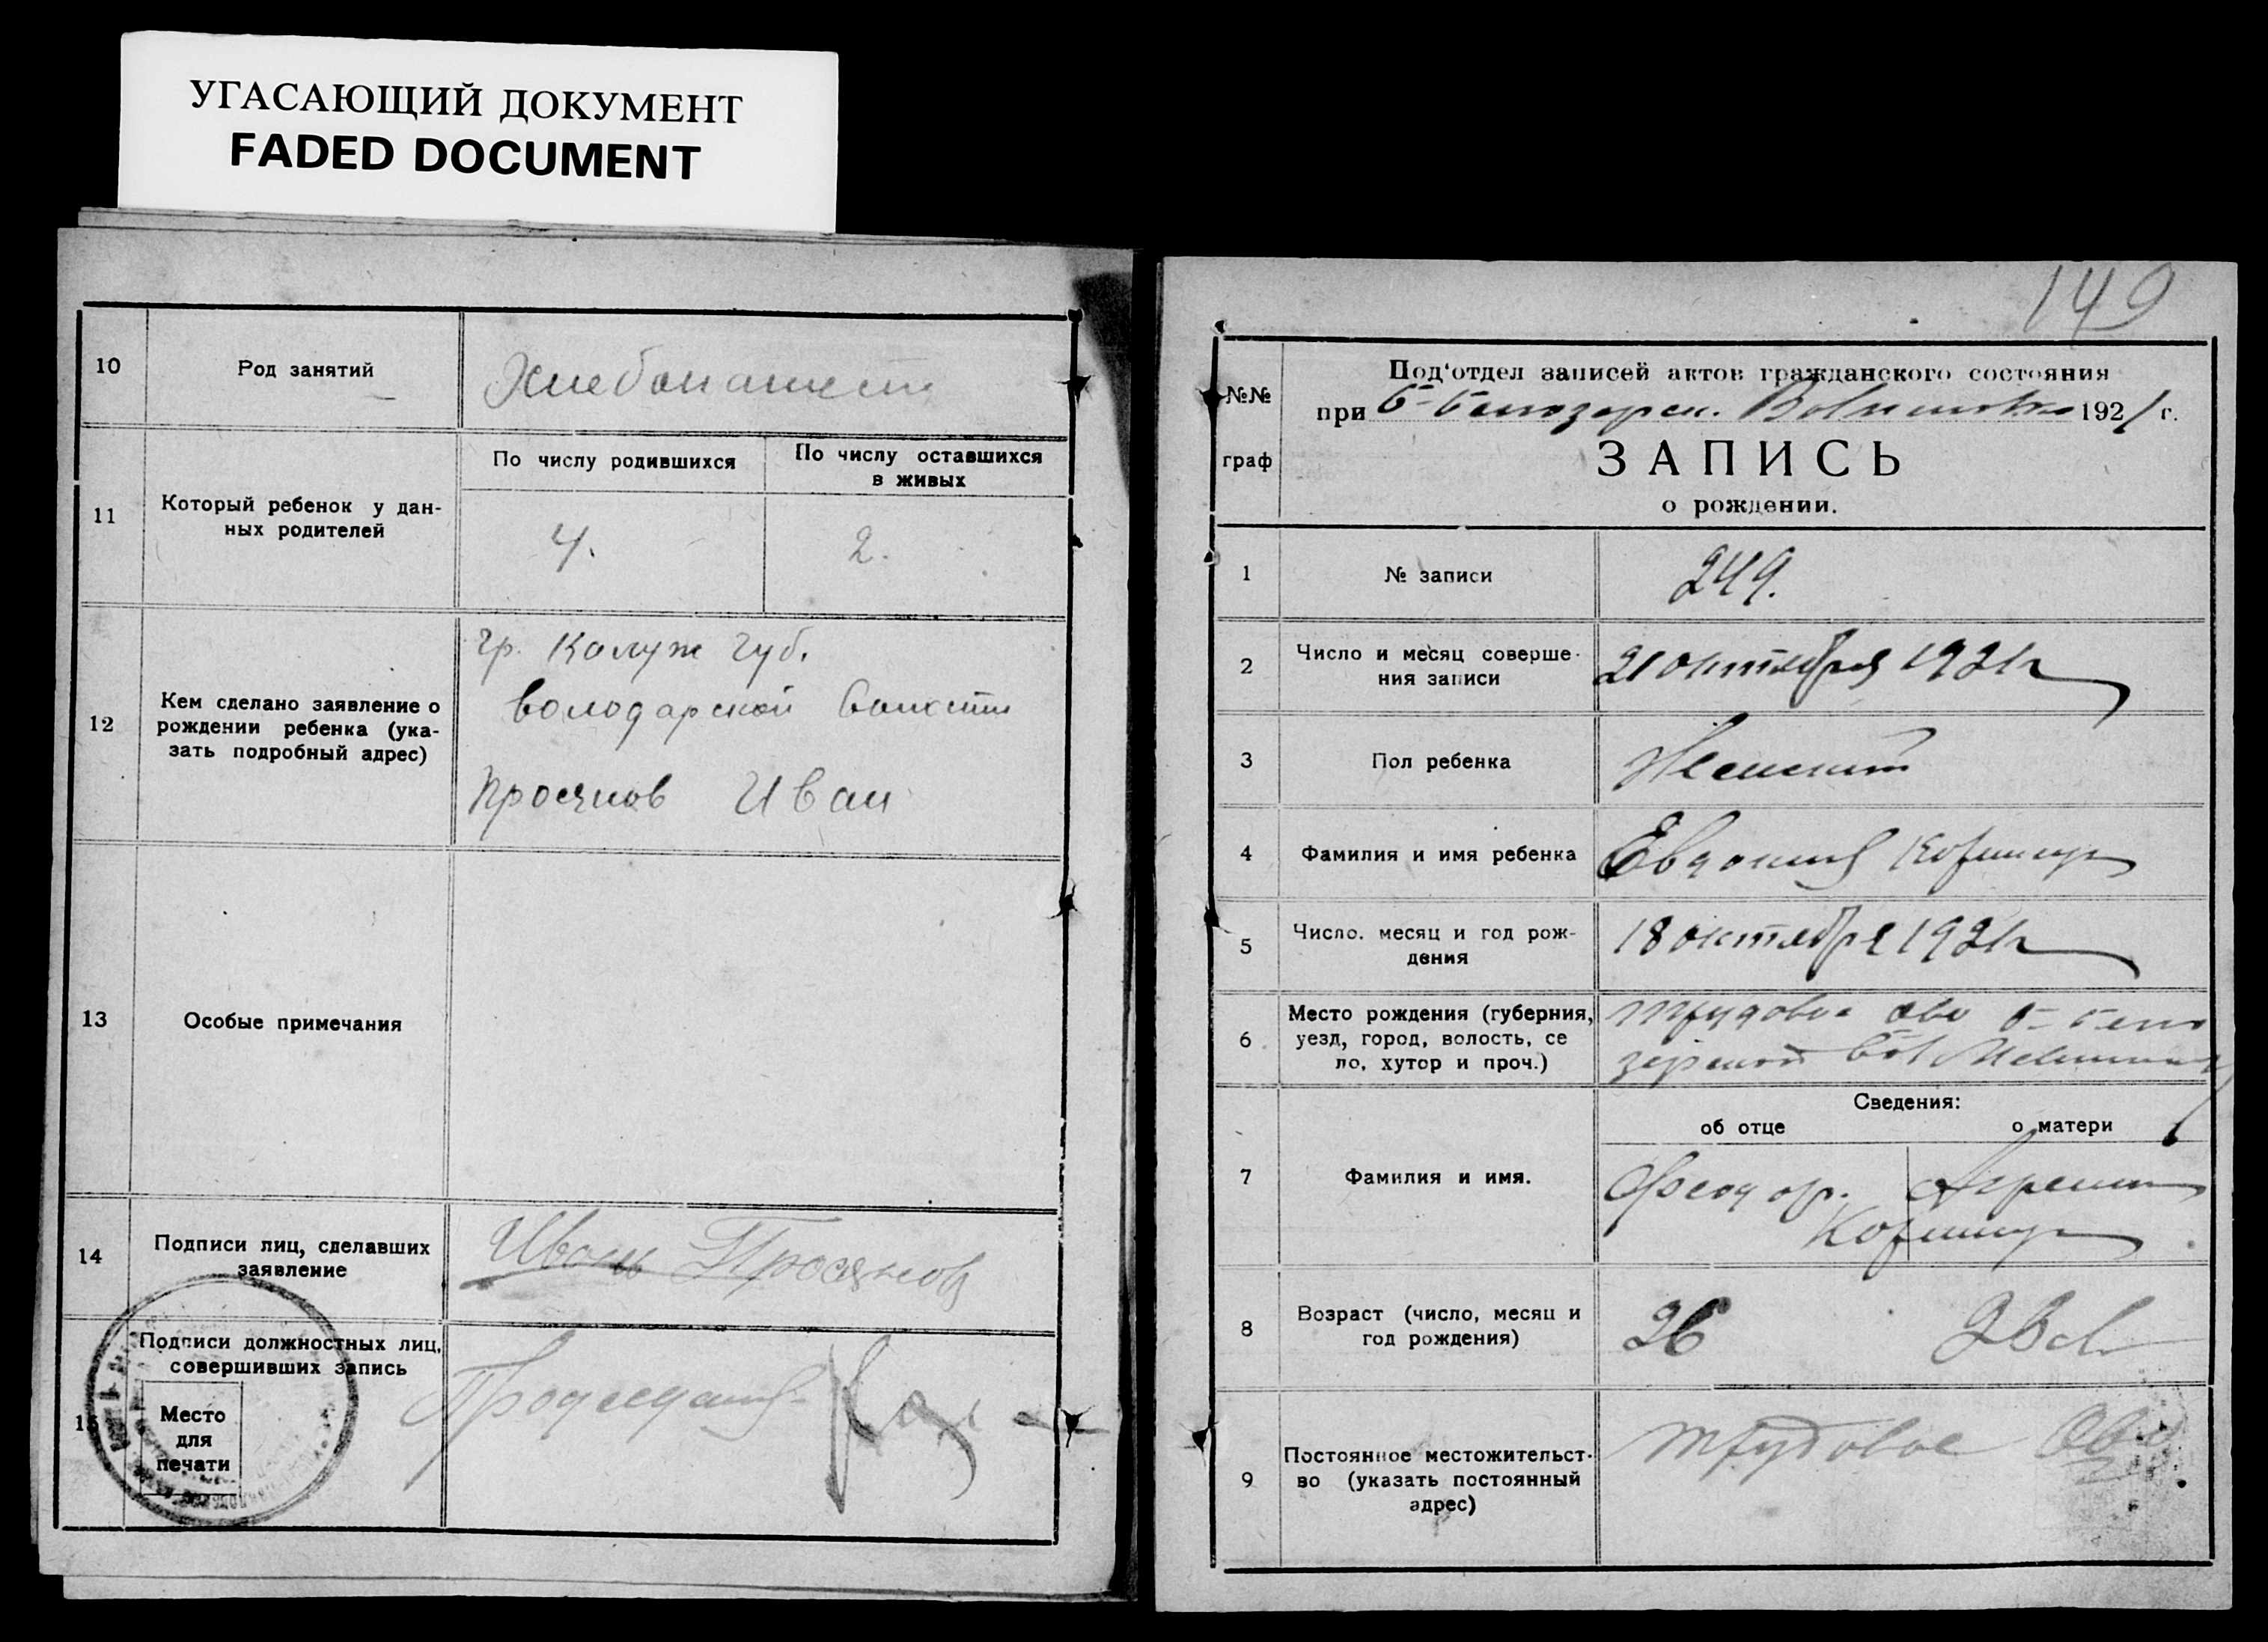 УГАСАЮЩИЙ ДОКУМЕНТ
FADED DOCUMENT
10
Род занятий
Хлебопашест
11
Который ребенок у дан-
ных родителей
По числу родившихся
По числу оставшихся
в живых
4.
2.
12
Кем сделано заявление о
рождении ребенка (ука-
зать подробный адрес)
гр. Калуж губ.
володарской волости
Просянов Иван
13
Особые примечания
14
Подписи лиц, сделавших
заявление
Иван Просянов
15
Подписи должностных лиц,
совершивших запись
Место
для
печати
149
№№
граф
Под'отдел записей актов гражданского состояния
при Б-Белозерск. 1921 г.
ЗАПИСЬ
о рождении.
1
№ записи
249.
2
Число и месяц соверше-
ния записи
21 октября 1921 г
3
Пол ребенка
Женский
4
Фамилия и имя ребенка
Евдокия
5
Число, месяц и год рож-
дения
18 октября 1921 г
6
Место рождения (губерния,
уезд, город, волость, се
ло, хутор и проч.)
Трудовое Б-Бело
зерской вол
Сведения:
об отце
о матери
7
Фамилия и имя.
Феодор.
8
Возраст (число, месяц и
год рождения)
26
9
Постоянное местожительст-
во (указать постоянный
адрес)
Трудовое